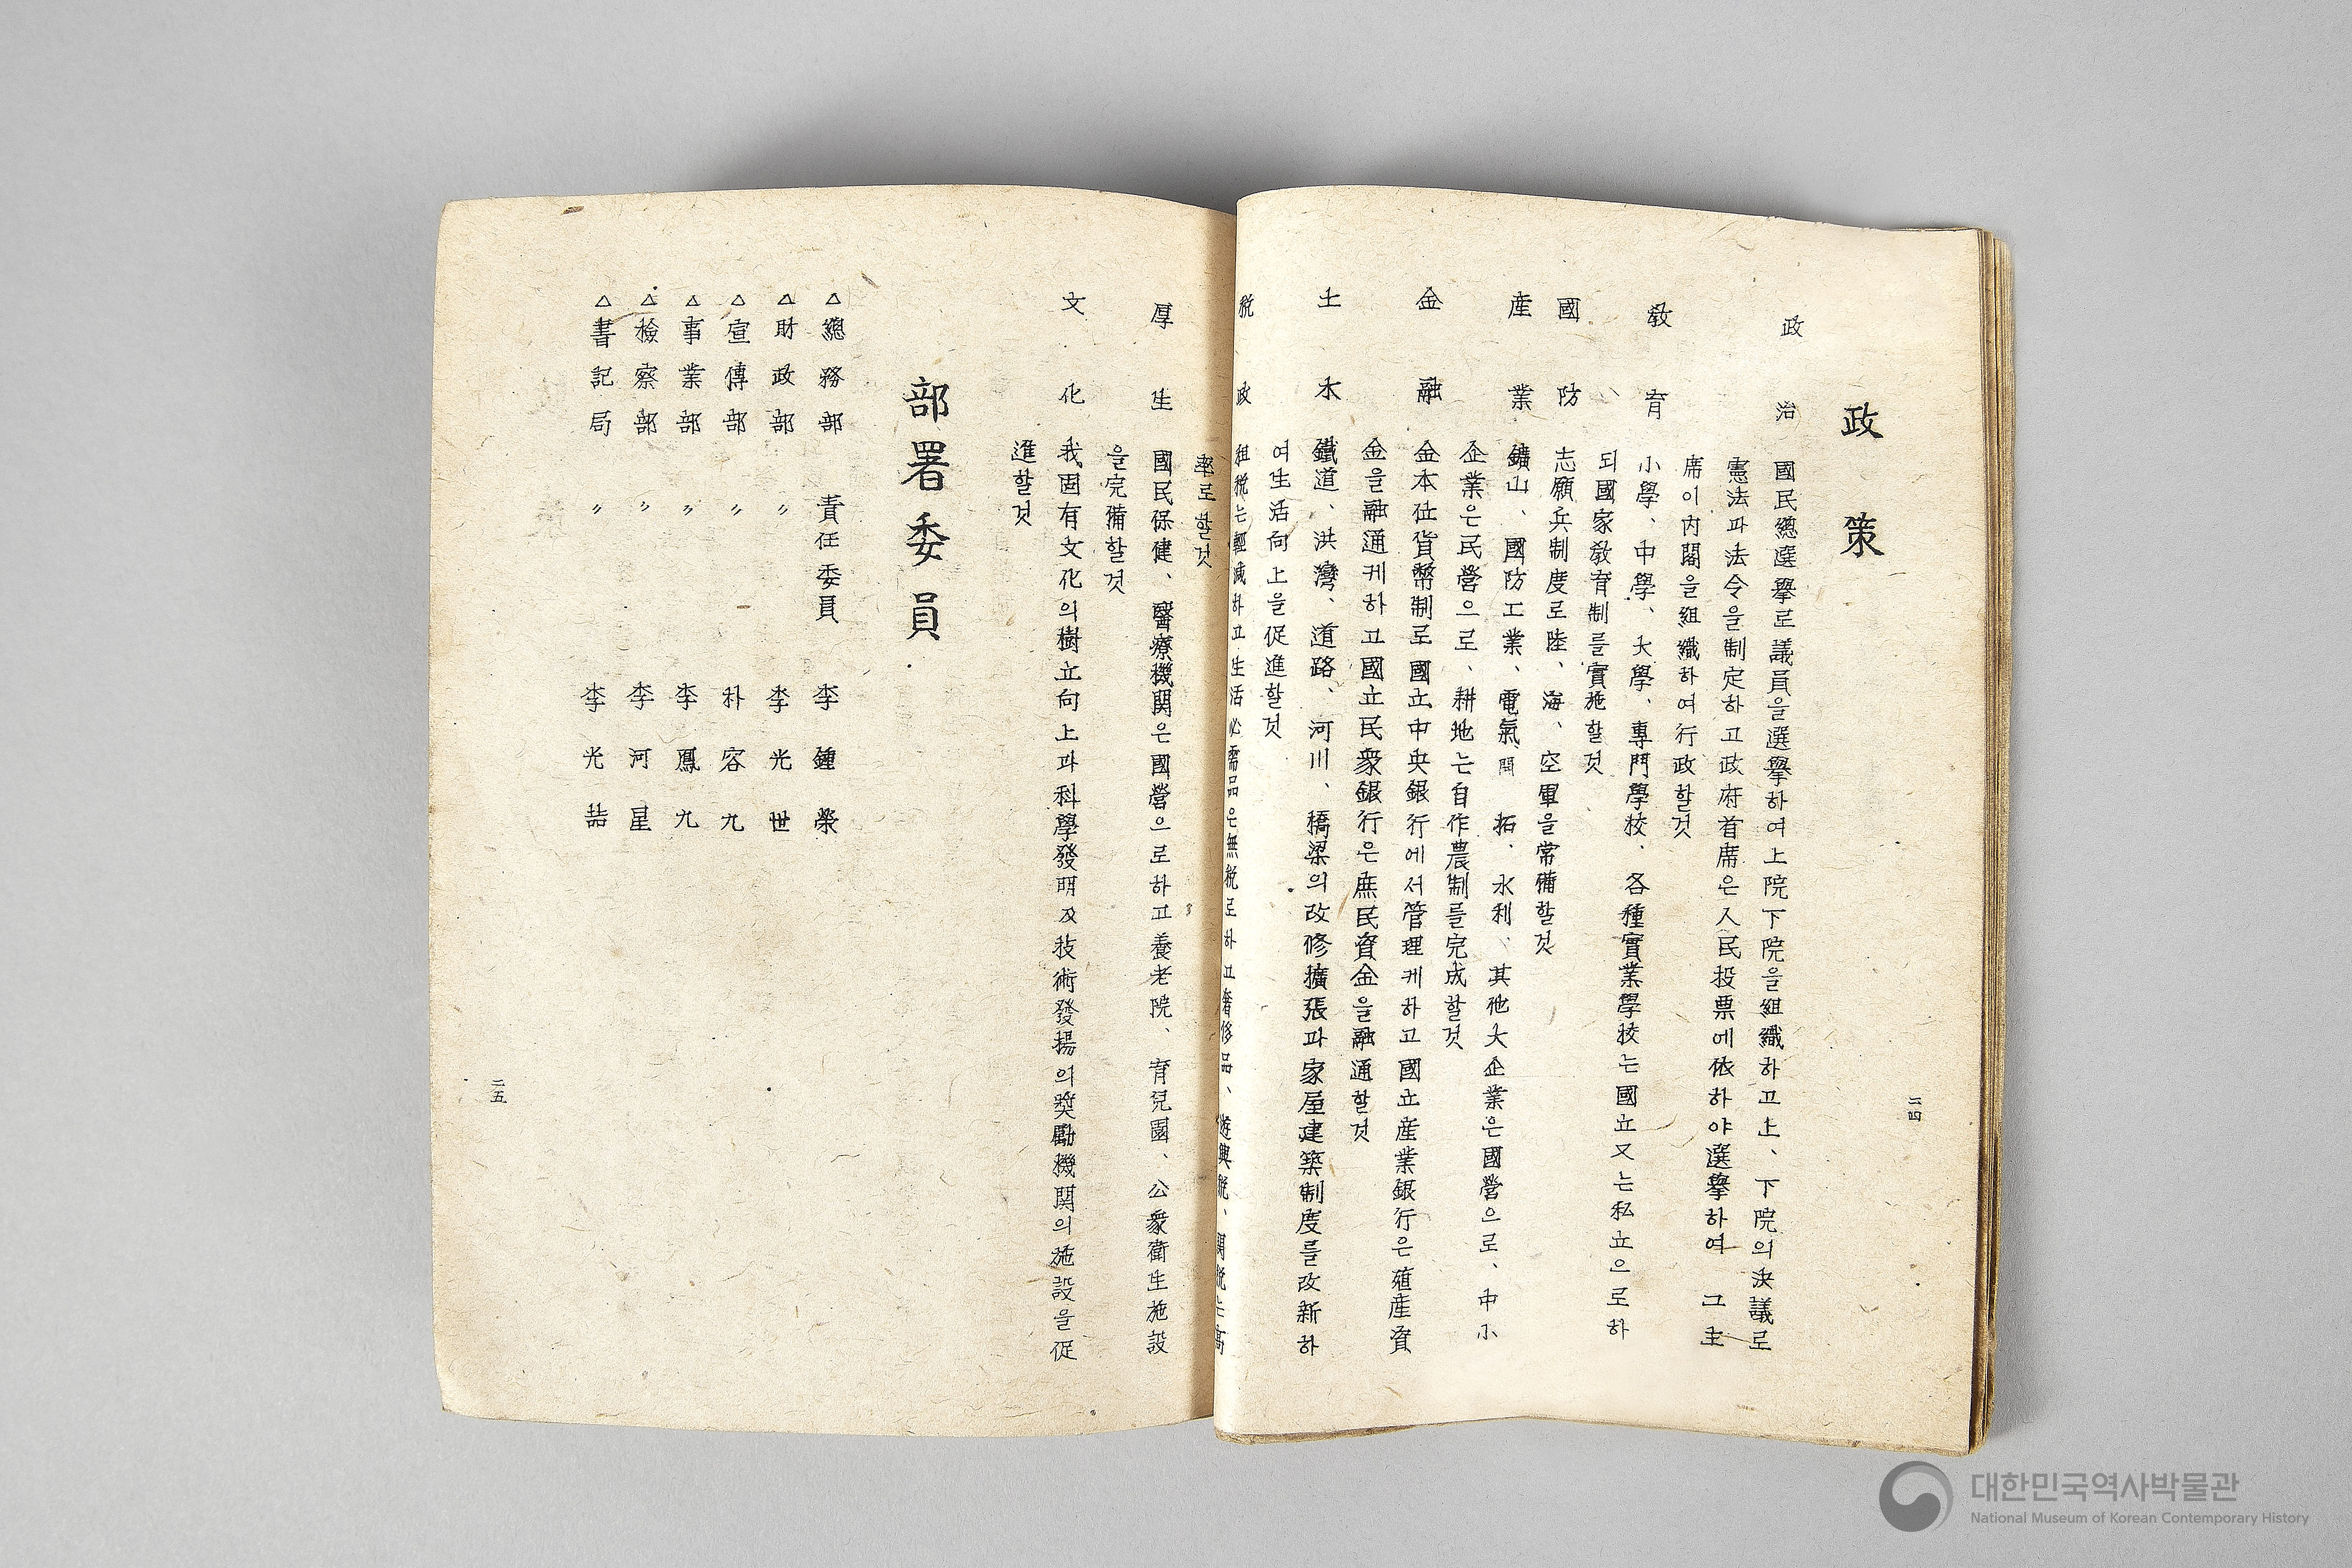 政策
政治 國民總選擧로 議員을選擧하여上院下院을組織하고上、下院의決議로
憲法과法令을制定하고政府首席은人民投票에依하야選擧하여 그主
席이內閣을組織하여行政할것
敎育 小學、中學、大學、專門學校、各種實業學校는國立又는私立으로하
되國家敎育制를實施할것
國防 志願兵制度로陸、海、空軍을常備할것
産業 鑛山、國防工業、電氣、開拓、水利、其他大企業은國營으로、中小
企業은民營으로、耕地는自作農制를完成할것
金融 金本位貨幣制로國立中央銀行에서管理케하고國立産業銀行은殖産資
金을融通케하고國立民衆銀行은庶民資金을融通할것
土木 鐵道、洪灣、道路、河川、橋梁의改修擴張과家屋建築制度를改新하
여生活向上을促進할것
稅政 租稅는輕減하고生活必需品은無稅로하고奢侈品、遊興稅、関稅는高
率로할것
二四
厚生 國民保健、醫療機関은國營으로하고養老院、育兒園、公衆衛生施設
을完備할것
文化 我固有文化의樹立向上과科學發明及技術發揚의奬勵機関의施設을促
進할것
部署委員
△總務部 責任委員 李鍾榮
△財政部 〃 李光世
△宣傳部 〃 朴容九
△事業部 〃 李鳳九
△檢察部 〃 李河星
△書記局 〃 李光喆
二五
대한민국역사박물관
National Museum of Korean Contemporary History